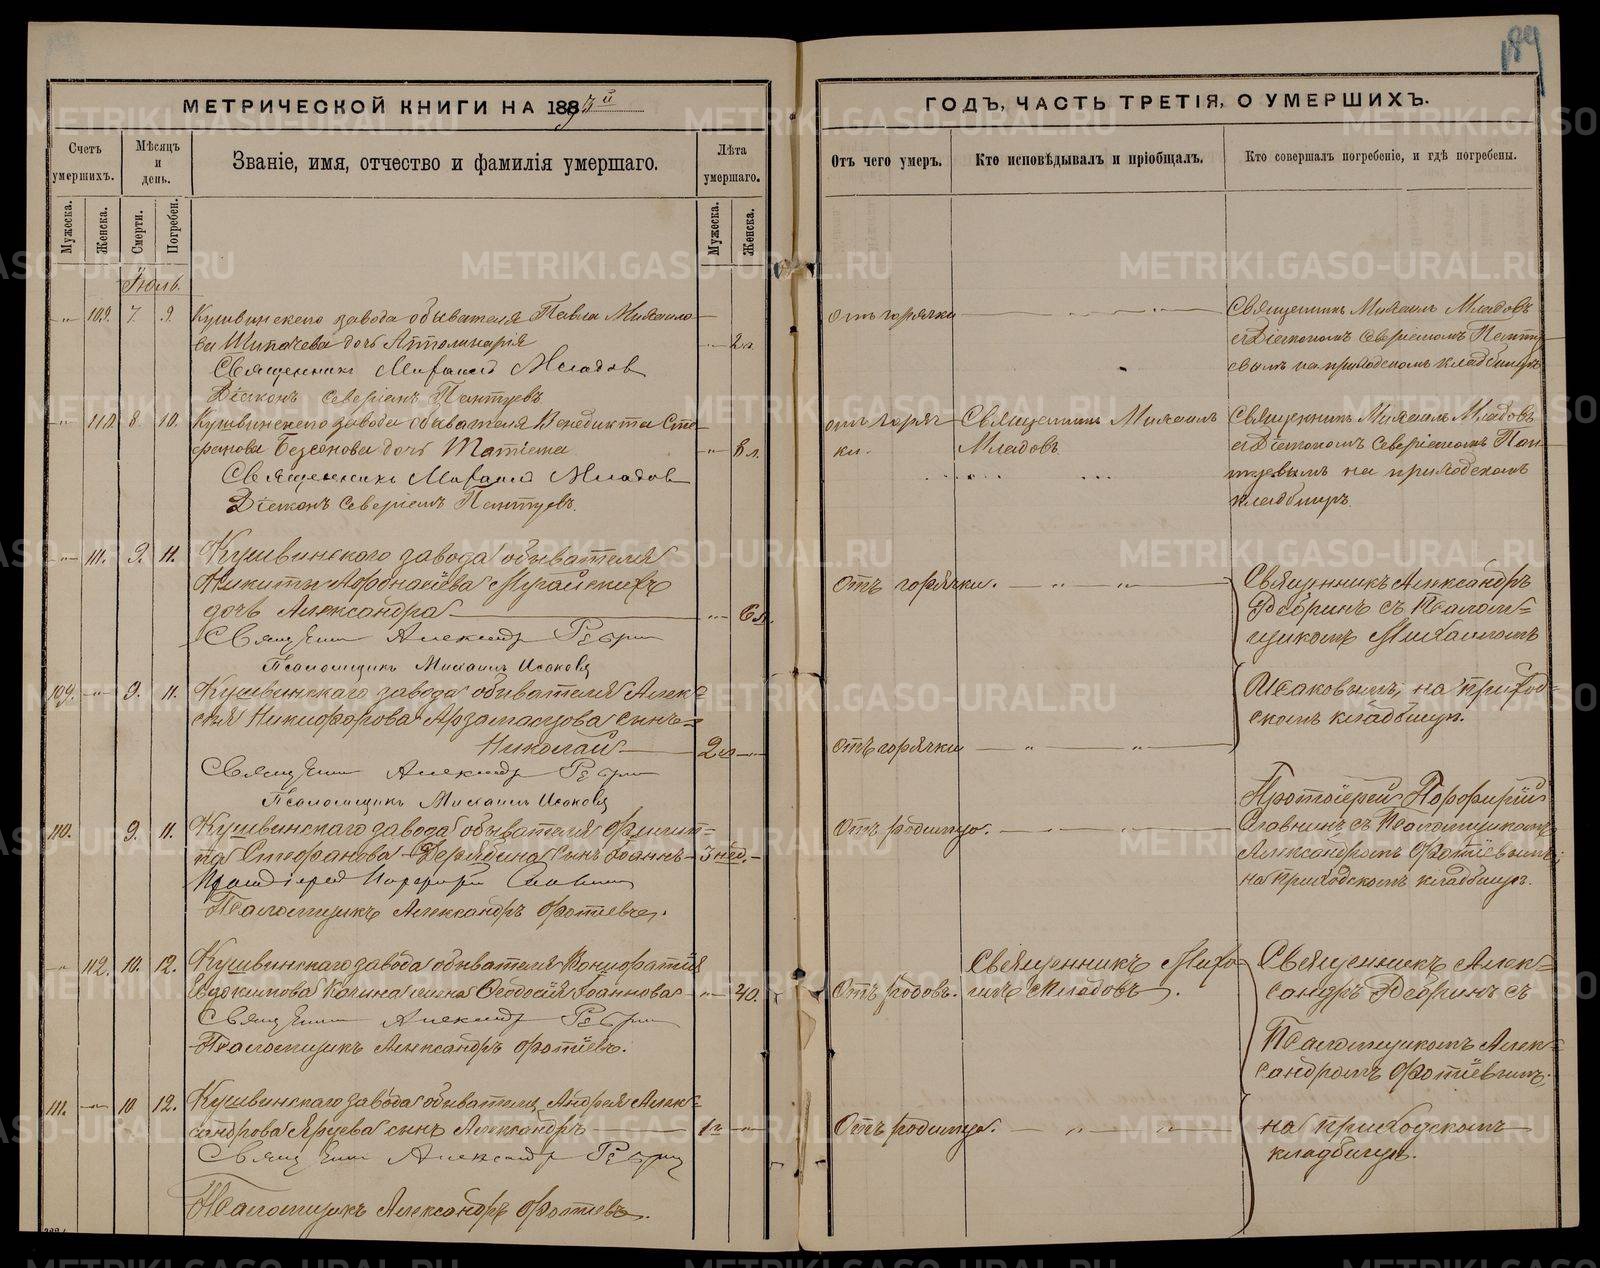 189
МЕТРИЧЕСКОЙ КНИГИ НА 1893й
ГОДЪ, ЧАСТЬ ТРЕТІЯ, О УМЕРШИХЪ.
Счетъ умершихъ.
Мѣсяцъ и день.
Званіе, имя, отчество и фамилія умершаго.
Лѣта умершаго.
Отъ чего умеръ.
Кто исповѣдывалъ и пріобщалъ.
Кто совершалъ погребеніе, и гдѣ погребены.
Мужеска.
Женска.
Смерти.
Погребен.
Мужеска.
Женска.
Іюль.
-"- 109. 7. 9. Кушвинскаго завода обывателя Павла Михаило-
ва Шипачева дочь Апполинарія -"- 2 л.
Священникъ Михаилъ Младов
Діаконъ Северіанъ Пантуевъ
отъ горячки
Священникъ Михаилъ Младовъ
съ Діакономъ Северіаномъ Панту-
евымъ на приходскомъ кладбищѣ
-"- 110 8. 10. Кушвинскаго завода обывателя Венедикта Сте-
фанова Безсонова дочь Татіана -"- 8 л.
Священникъ Михаилъ Младов
Діаконъ Северіанъ Пантуевъ.
отъ горяч-
ки.
Священникъ Михаилъ
Младовъ
Священникъ Михаилъ Младовъ
съ Діакономъ Северіаномъ Пан-
туевымъ на приходскомъ
кладбищѣ.
-"- 111. 9. 11. Кушвинскаго завода обывателя
Никиты Афонасіева Мугайскихъ
дочь Александра -"- 6 л.
Священникъ Александр Ребрин
Псаломщикъ Михаилъ Исаковъ
Отъ горячки.
Священникъ Александръ
Ребринъ съ Псалом-
щикомъ Михаиломъ
Исаковымъ, на приход-
скомъ кладбищѣ.
109. -"- 9. 11. Кушвинскаго завода обывателя Алек-
сѣя Никифорова Арзамасцова сынъ
Николай 2 л -"-
Священникъ Александр Ребрин
Псаломщикъ Михаилъ Исаковъ
Отъ горячки
110. 9. 11. Кушвинскаго завода обывателя Филип-
па Стефанова Дерябина сынъ Іоаннъ 3 нед.
Протоіерей Порфирій Славнин
Псаломщикъ Александръ Фотіевъ.
Отъ родимца.
Протоіерей Порфирій
Славнинъ съ Псаломщикомъ
Александромъ Фотіевымъ,
на приходскомъ кладбищѣ.
-"- 112. 10. 12. Кушвинскаго завода обывателя Вонифатія
Евдокимова Качина жена Ѳеодосія Іоаннова -"- 40.
Священникъ Александр Ребрин
Псаломщикъ Александръ Фотіевъ.
Отъ родовъ.
Священникъ Миха-
илъ Младовъ.
Священникъ Алек-
сандръ Ребринъ съ
Псаломщикомъ Алек-
сандромъ Фотіевымъ,
на приходскомъ
кладбищѣ.
111. -"- 10 12. Кушвинскаго завода обывателя Андрея Алек-
сандрова Ярцева сынъ Александръ 1 г -"-
Священникъ Александр Ребрин
Псаломщикъ Александръ Фотіевъ.
Отъ родимца.
METRIKI.GASO-URAL.RU